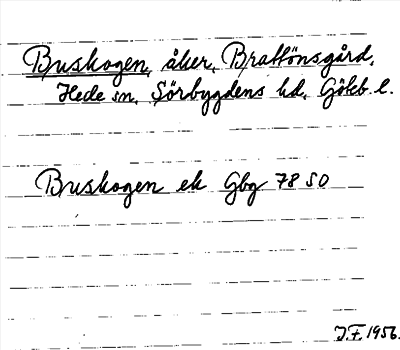 Buskogen, åker, Brattönsgård,
Hede sn, Sörbygdens hd, Göteb. l.
Buskogen ek Gbg 78 SO
J.F. 1956.